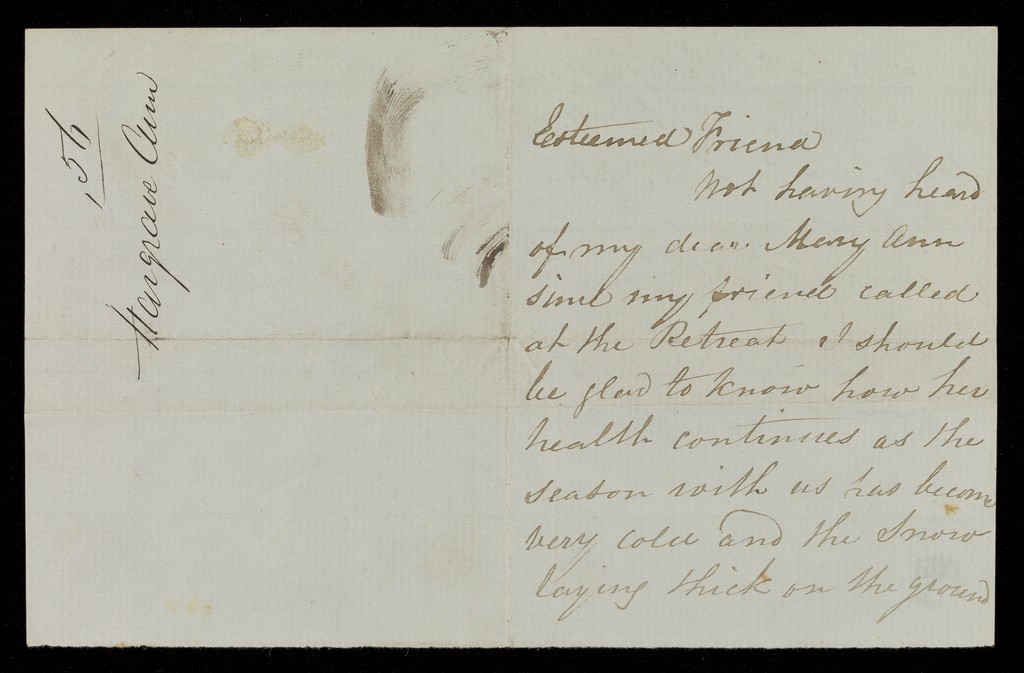 154
Hargrave Ann
Esteemed Friend
Not having heard
of my dear Mary Ann
since my friend called
at the Retreat I should
be glad to know how her
health continues as the
season with us has become
very cold and the Snow
laying thick on the ground